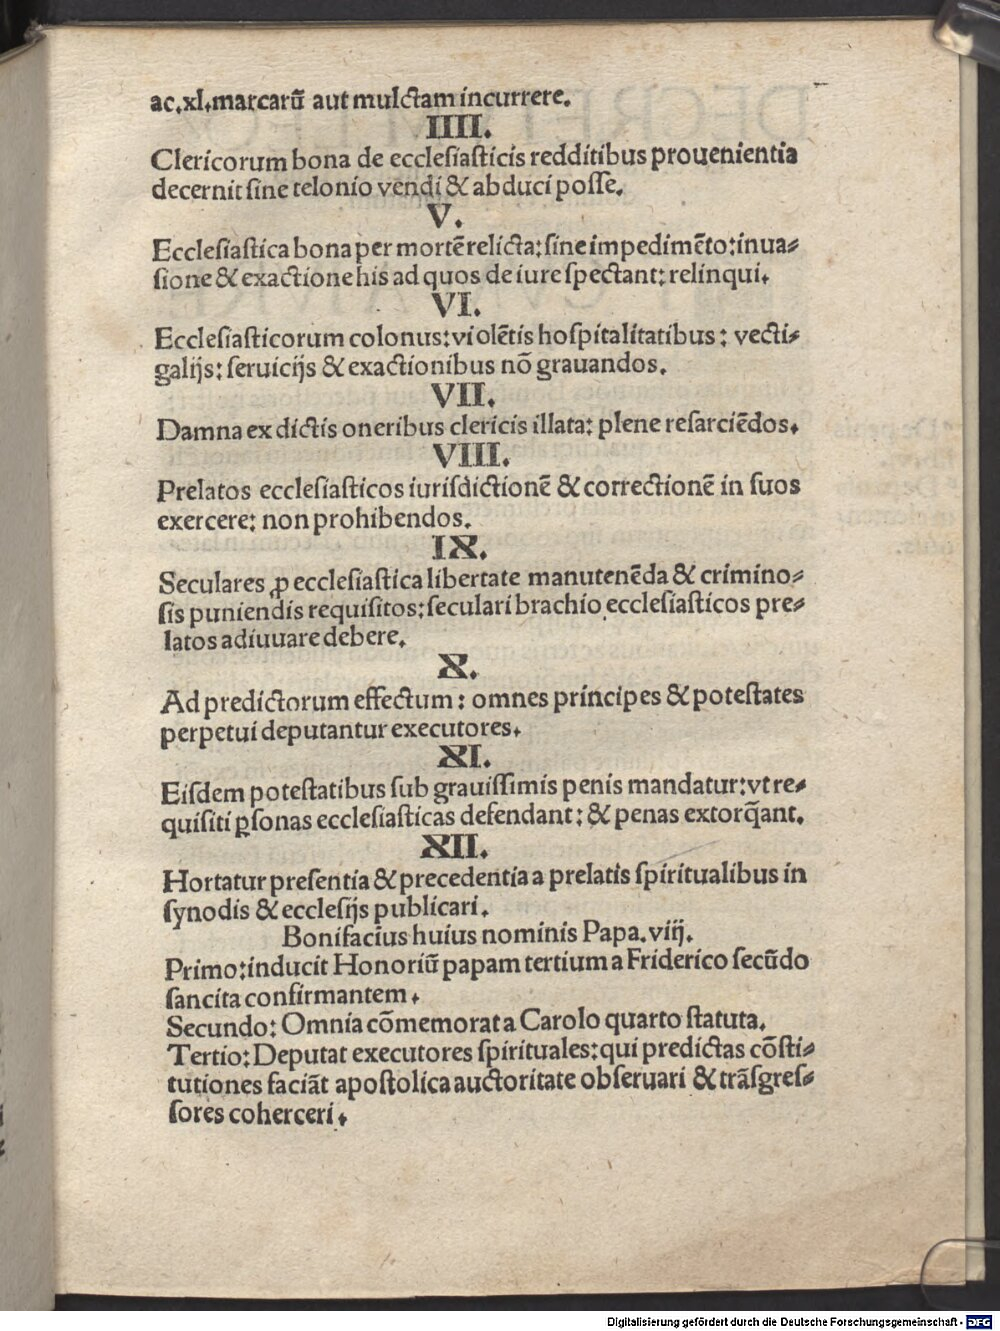 ac.xl.marcarũ aut mulctam incurrere.
IIII.
Clericorum bona de ecclesiasticis redditibus prouenientia
decernit sine telonio vendi & abduci posse.
V.
Ecclesiastica bona per mortẽ relicta: sine impedimẽto: inua⸗
sione & exactione his ad quos de iure spectant: relinqui.
VI.
Ecclesiasticorum colonus: violẽtis hospitalitatibus: vecti⸗
galijs: seruicijs & exactionibus nõ grauandos.
VII.
Damna ex dictis oneribus clericis illata: plene resarciẽdos.
VIII.
Prelatos ecclesiasticos iurisdictionẽ & correctionẽ in suos
exercere: non prohibendos.
IX.
Seculares ꝓ ecclesiastica libertate manutenẽda & crimino⸗
sis puniendis requisitos: seculari brachio ecclesiasticos pre⸗
latos adiuuare debere.
X.
Ad predictorum effectum: omnes principes & potestates
perpetui deputantur executores.
XI.
Eisdem potestatibus sub grauissimis penis mandatur: vt re⸗
quisiti ꝑsonas ecclesiasticas defendant: & penas extorq̃ant.
XII.
Hortatur presentia & precedentia a prelatis spiritualibus in
synodis & ecclesijs publicari.
Bonifacius huius nominis Papa. viij.
Primo: inducit Honoriũ papam tertium a Friderico secũdo
sancita confirmantem.
Secundo: Omnia cõmemorat a Carolo quarto statuta.
Tertio: Deputat executores spirituales: qui predictas cõsti⸗
tutiones faciãt apostolica auctoritate obseruari & trãsgres⸗
sores coherceri.
Digitalisierung gefördert durch die Deutsche Forschungsgemeinschaft - DFG